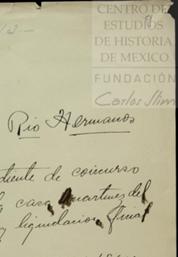 CENTRO DE
ESTUDIOS
DE HISTORIA
DE MEXICO
FUNDACIÓN
Carlos Slim
Rio Hermanos
diente de concurso
casa Martinez del
y liquidacion final